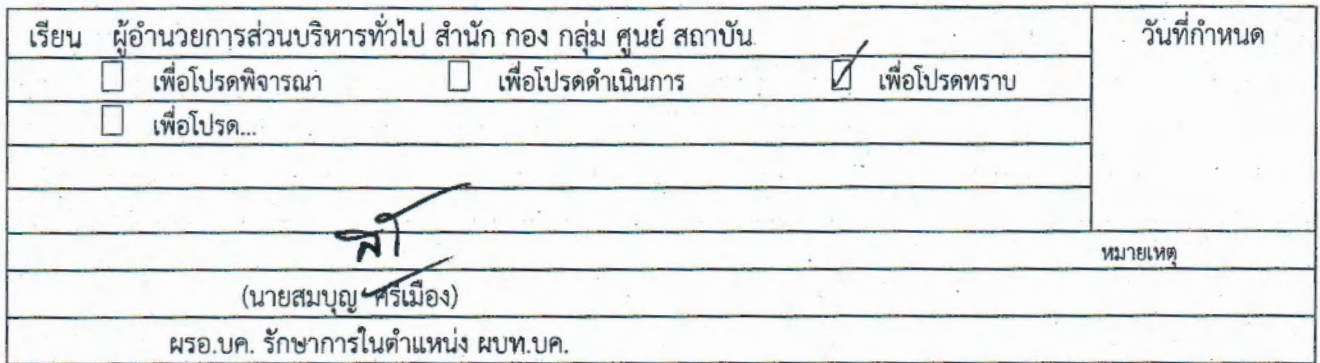 เรียน ผู้อำนวยการส่วนบริหารทั่วไป สำนัก กอง กลุ่ม ศูนย์ สถาบัน
วันที่กำหนด
เพื่อโปรดพิจารณา เพื่อโปรดดำเนินการ เพื่อโปรดทราบ
เพื่อโปรด...
หมายเหตุ
(นายสมบุญ ศรีเมือง)
ผรอ.บค. รักษาการในตำแหน่ง ผบท.บค.